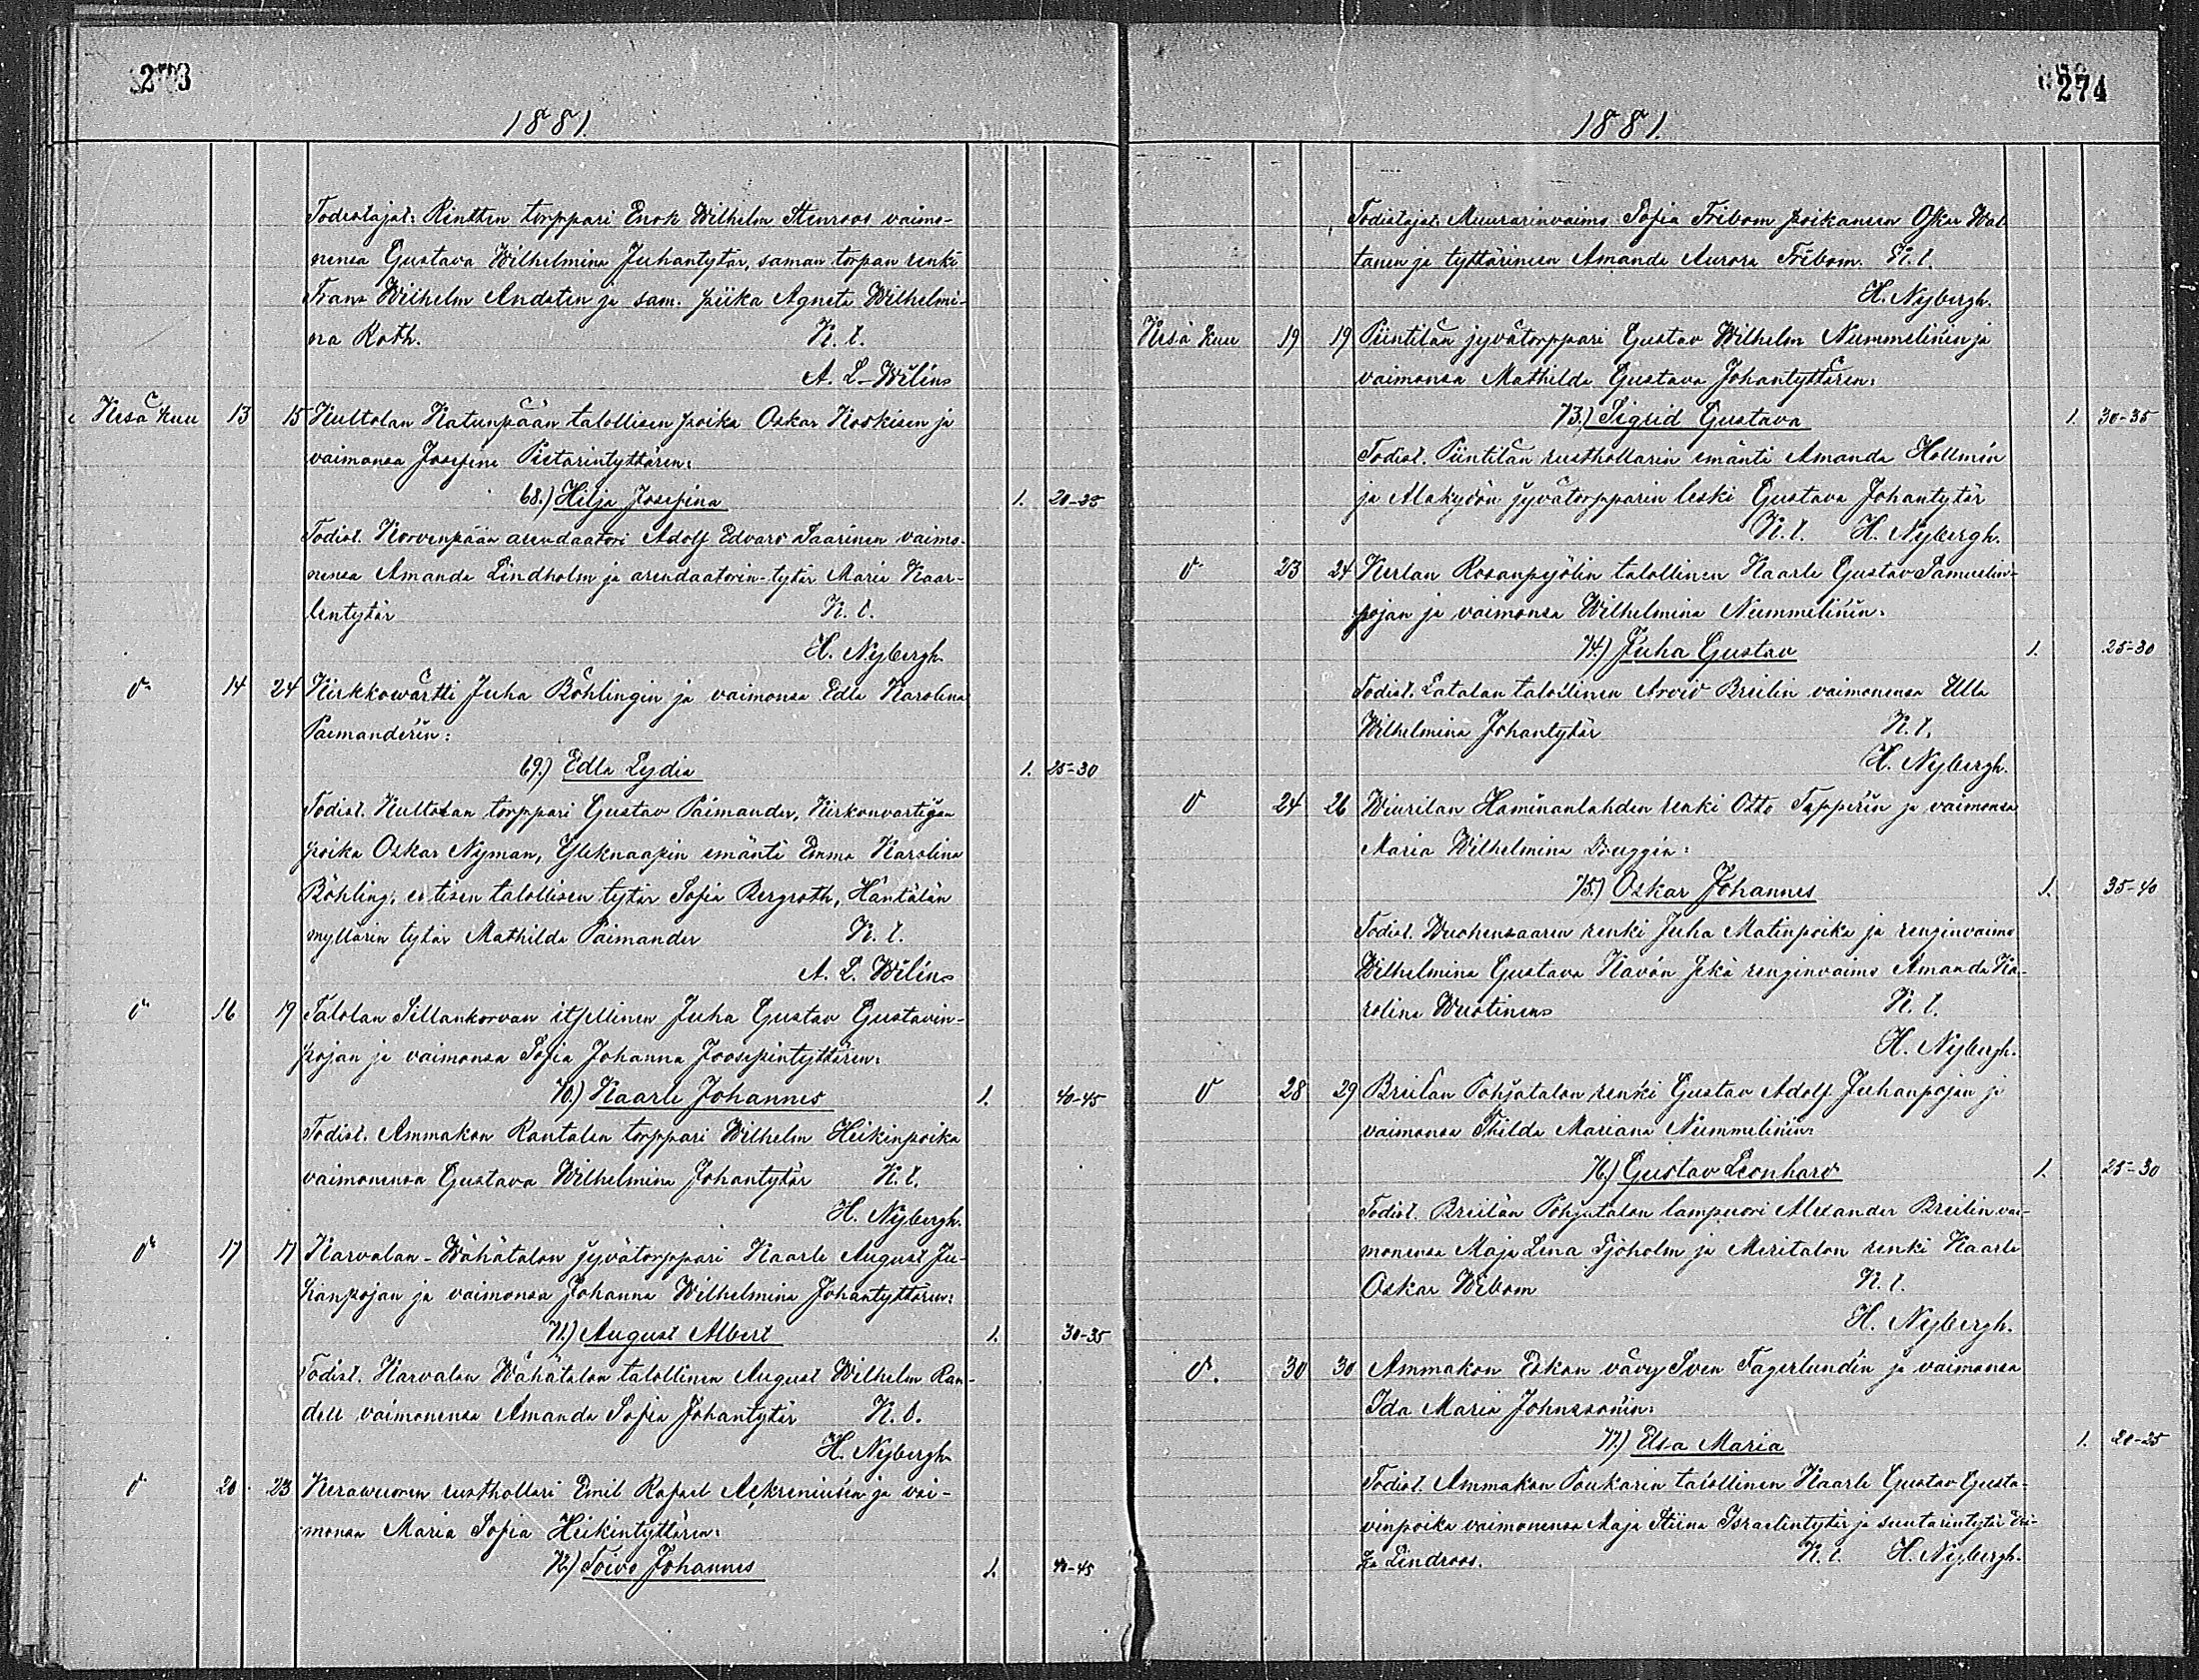 273
1881
Todistajat: Rintten torppari Enok Wilhelm Stenroos vaimo-
nensa Gustava Wilhelmina Juhantytär, saman torpan renki
Frans Wilhelm Andstén ja sam. piika Agneta Wilhelmi-
na Roth. K. l.
A. L. Wilén
Kesä kuu 13 15 Kultolan Katunpään talollisen poika Oskar Koskisen ja
vaimonsa Josefina Pietarintyttären:
68.) Hilja Josefina 1. 20-25
Todist. Korvenpään arendaatori Adolf Edvard Saarinen vaimo-
nensa Amanda Lindholm ja arendaatorin-tytär Maria Kaar-
lentytär K. l.
H. Nybergh
14 24 Kirkkowärtti Juha Böhlingin ja vaimonsa Edla Karolina
Paimanderin:
69.) Edla Lydia 1. 25-30
Todist. Kultolan torppari Gustav Paimander, Kirkonvartijan
poika Oskar Nyman, Yleknaapin emäntä Emma Karolina
Böhling, entisen talollisen tytär Sofia Bergroth, Häntälän
myllärin tytär Mathilda Paimander K. l.
A. L. Wilén
16 19 Talolan Sillankorvan itsellinen Juha Gustav Gustavin-
pojan ja vaimonsa Sofia Johanna Joosepintyttären:
70.) Kaarle Johannes 1. 40-45
Todist. Ammakon Rantalan torppari Wilhelm Heikinpoika
vaimonensa Gustava Wilhelmina Johantytär K. l.
H. Nybergh.
17 17 Karvalan-Wähätalon jyvätorppari Kaarle August Ju-
hanpojan ja vaimonsa Johanna Wilhelmina Johantyttären:
71.) August Albert 1. 30-35
Todist. Karvalan Wähätalon talollinen August Wilhelm Ran-
dell vaimonensa Amanda Sofia Johantytär K. l.
H. Nybergh
20 23 Kerawuoren rusthollari Emil Rafael Ackreniusen ja vai-
monsa Maria Sofia Heikintyttären:
72.) Toivo Johannes 1. 40-45
274
1881.
Todistajat: Muurarinvaimo Sofia Fribom poikansa Oskar Wal
tanen ja tyttärineen Amanda Aurora Fribom. K. l.
H. Nybergh.
Kesä kuu 19 19 Piintilän jyvätorppari Gustav Wilhelm Nummelinin ja
vaimonsa Mathilda Gustava Johantyttären:
73.) Sigrid Gustava 1. 30-35
Todist. Piintilän rusthollarin emäntä Amanda Hollmén
ja Alakydön jyvätorpparin leski Gustava Johantytär
K. l. H. Nybergh.
23 24 Kerlan Rosanpyölin talollinen Kaarle Gustav Samuelin-
pojan ja vaimonsa Wilhelmina Nummelinin:
74.) Juha Gustav 1. 25-30
Todist. Latalan talollinen Arvid Breilin vaimonensa Ulla
Wilhelmina Johantytär K. l.
H. Nybergh.
24 26 Wiurilan Haminanlahden renki Otto Tapperin ja vaimonsa
Maria Wilhelmina Bruggin:
75.) Oskar Johannes 1. 35-40
Todist. Wuohensaaren renki Juha Matinpoika ja renginvaimo
Wilhelmina Gustava Kavén sekä renginvaimo Amanda Ka-
rolina Wuotinen K. l.
H. Nybergh.
28 29 Breilan Pohjatalon renki Gustav Adolf Juhanpojan ja
vaimonsa Thilda Mariana Nummelinin:
76.) Gustav Leonhard 1. 25-30
Todist. Breilän Pohjatalon lampuori Alexander Breilin vai-
monensa Maja Lena Sjöholm ja Meritalon renki Kaarle
Oskar Wibom K. l.
H. Nybergh.
30 30 Ammakon Eskon vävy Sven Fagerlundin ja vaimonsa
Ida Maria Johnssonin:
77.) Elsa Maria 1. 20-25
Todist. Ammakon Poukarin talollinen Kaarle Gustav Gusta-
vinpoika vaimonensa Maja Stiina Israelintytär ja suutarintytär
Lindroos. K. l. H. Nybergh.